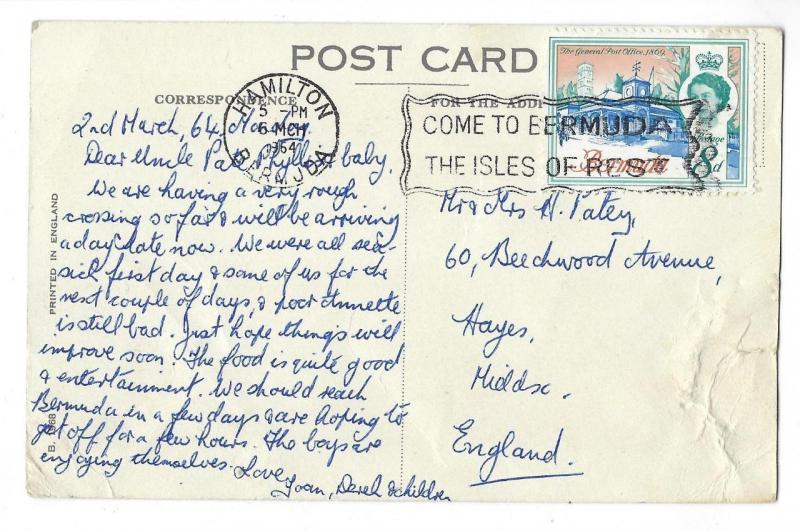 POST CARD
CORRESPONDENCE
FOR THE ADDR
The General Post Office, 1869.
Postage
Bermuda
8d
HAMILTON
5 - PM
6 MCH
1964
BERMUDA
COME TO BERMUDA
THE ISLES OF REST
2nd March, 64,
Dear Uncle Pat, Phyllis & baby,
We are having a very rough
crossing so far & will be arriving
a day late now. We were all sea-
sick first day & some of us for the
next couple of days, & poor Annette
is still bad. Just hope things will
improve soon. The food is quite good
& entertainment. We should reach
Bermuda in a few days & are hoping to
get off for a few hours. The boys are
enjoying themselves. Love
Joan, Derek & children
Mr & Mrs H. Patey,
60, Beechwood Avenue,
Hayes,
Middx.
England.
PRINTED IN ENGLAND
B. 1968